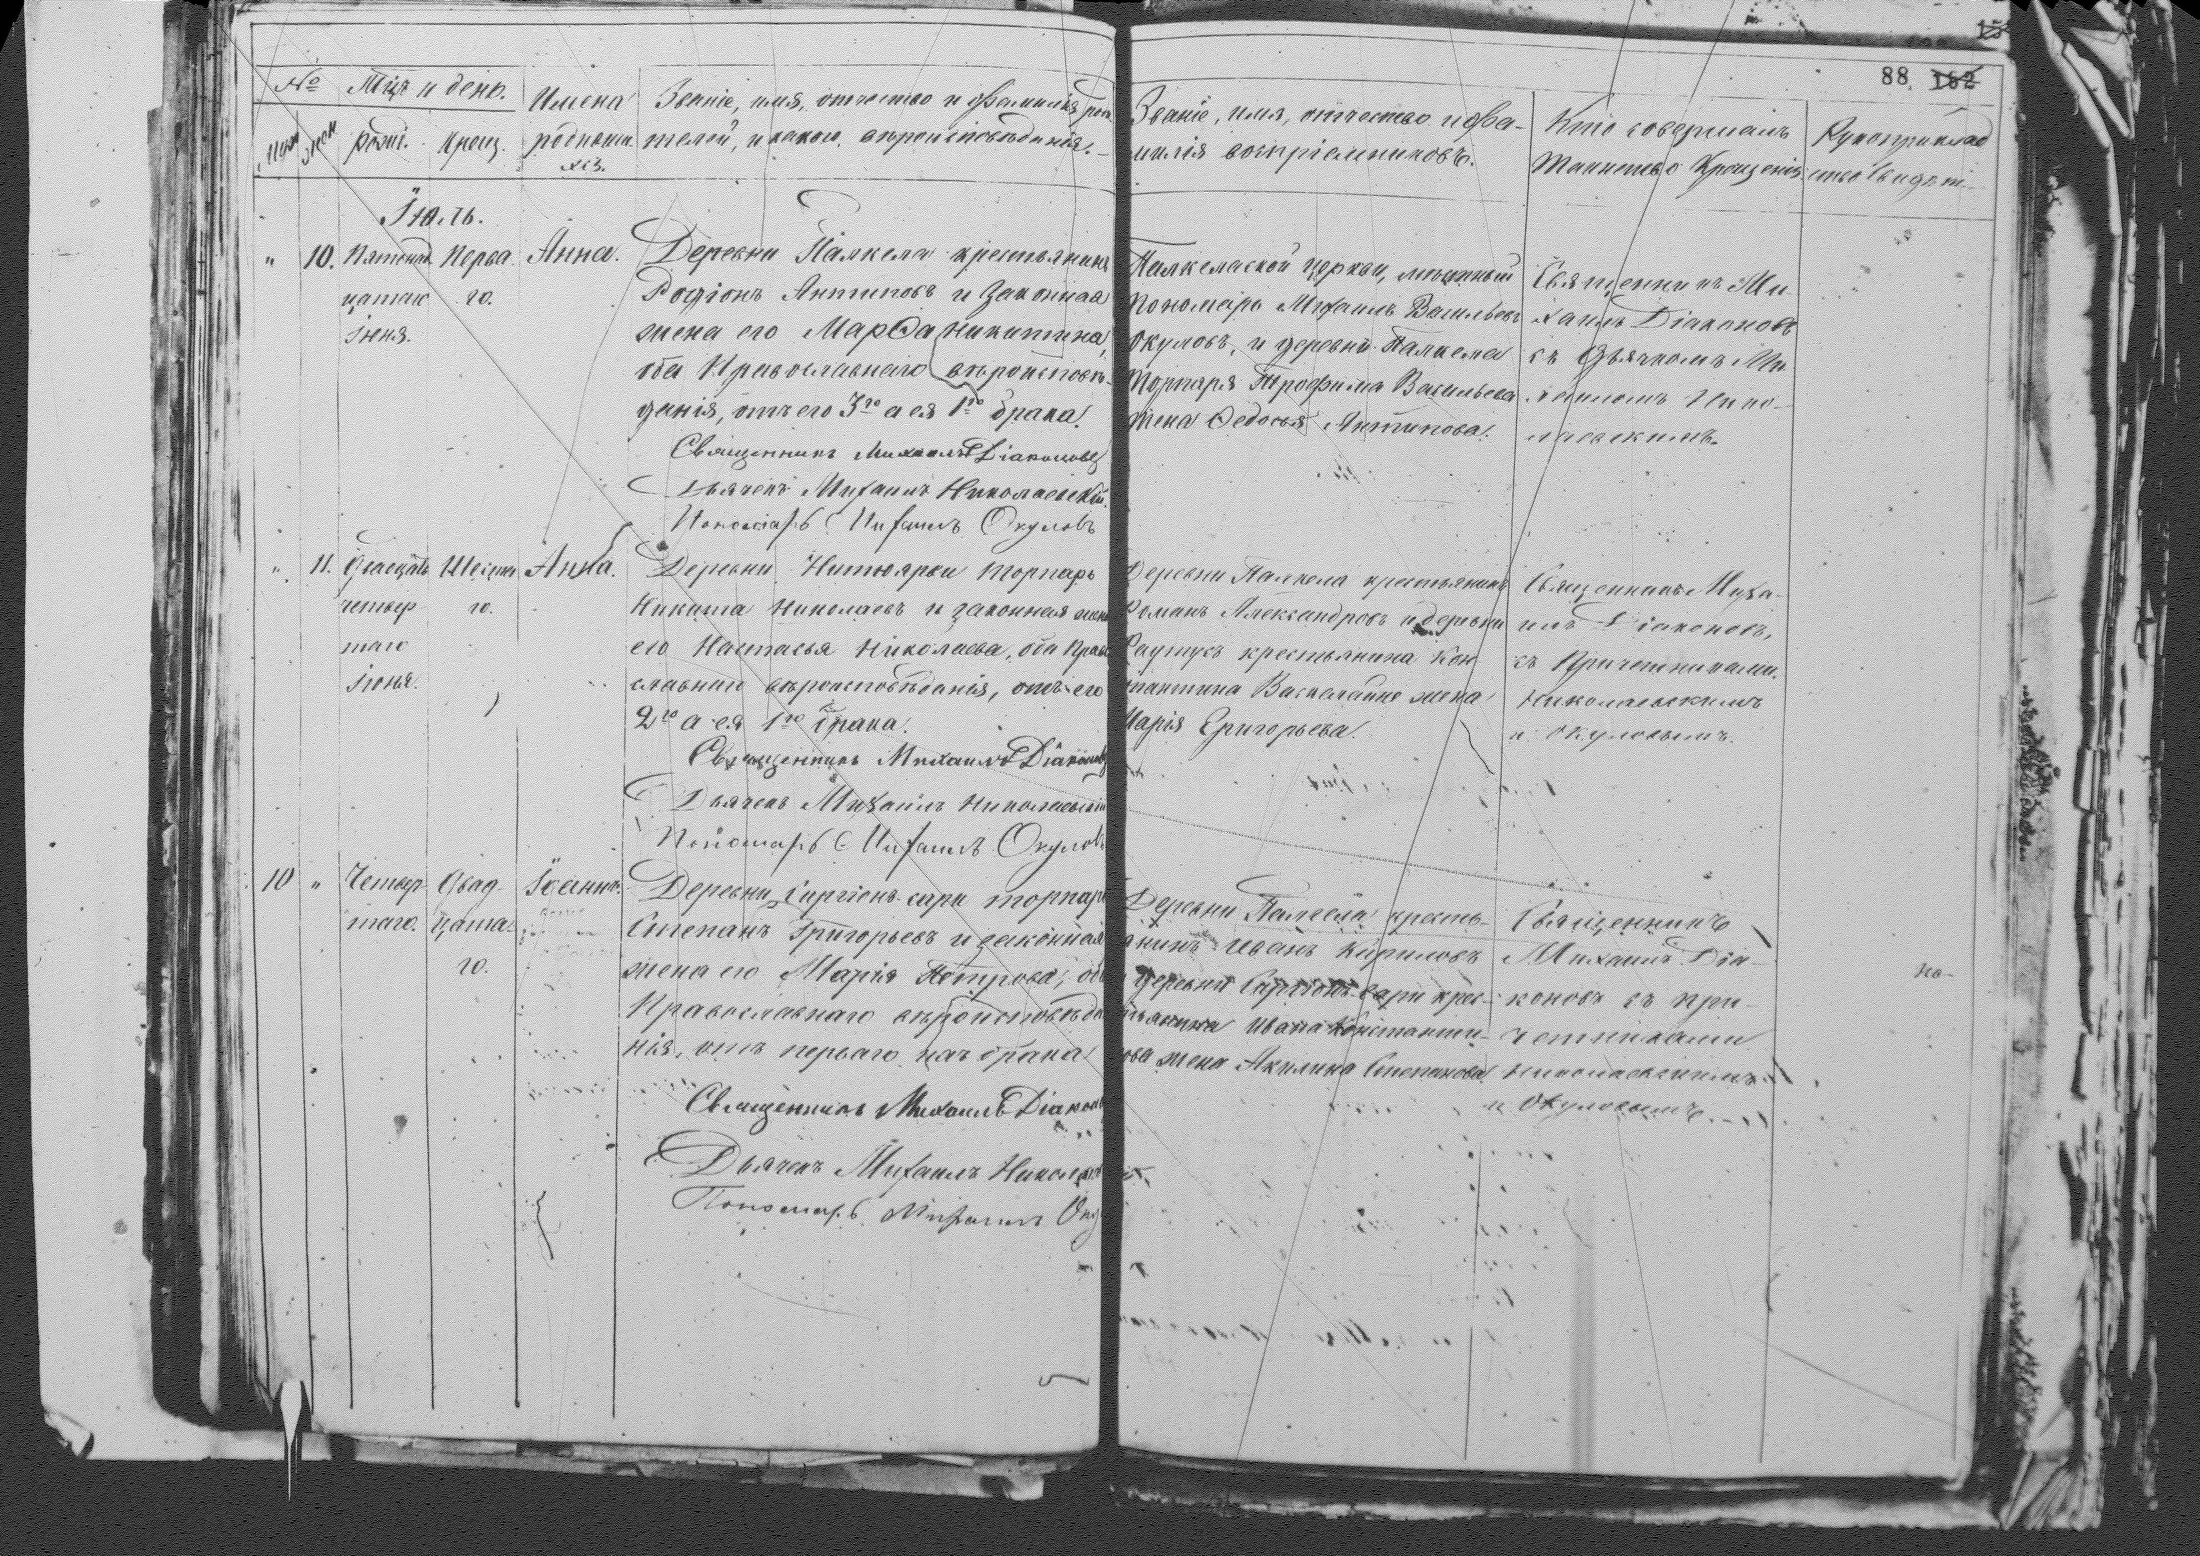 88 162
№ Мцъ и день. Имена Званіе, имя, отчество и фамилія роди
муж жен рожд. крещ. родивши телей, и какого вѣроисповѣданія.
хся.
Званіе, имя, отчество и фа-
милія воспріемниковъ.
Кто совершалъ
таинство крещенія
Рукоприклад
ство свидѣт.
Іюль.
" 10. Пятонад Перва Анна. Деревни Палкела крестьянинъ
цатаго го. Родіонъ Антиповъ и законная
Іюня. жена его Марѳа Никитина,
оба Православнаго вѣроисповѣ-
данія, отъ его 3го а ея 1го брака.
Священникъ Михаилъ Діаконовъ
Дьячекъ Михаилъ Николаевскій
Пономарь Михаилъ Окуловъ
Палкелаской церкви, мѣстный
Пономарь Михаилъ Васильевъ
Окуловъ, и деревни Палкела
Торпаря Трофима Васильева
жена Ѳедосья Антипова.
Священникъ Ми
хаилъ Діаконовъ
съ Дьячкомъ Ми
хаиломъ Нико-
лаевскимъ.
" 11. Двадцать Шеста Анна. Деревни Нитюярви торпарь
четвер го. Никита Николаевъ и законная жена
таго его Настасья Николаева, оба Право
Іюня. славнаго вѣроисповѣданія, отъ его
2го а ея 1го брака.
Священникъ Михаилъ Діаконовъ
Дьячекъ Михаилъ Николаевскій
Пономарь Михаилъ Окуловъ
Деревни Палкела крестьянинъ
Романъ Александровъ и деревни
Раутусъ крестьянина Кон
стантина Васкелайне жена
Марія Григорьева.
Священникъ Миха
илъ Діаконовъ,
съ Причетниками
Николаевскимъ
и Окуловымъ.
10 " Четвер Двад Іоаннъ. Деревни Сиргіенъ-сари торпарь
таго. цата Степанъ Григорьевъ и законная
го. жена его Марія Петрова, оба
Православнаго вѣроисповѣда
нія, отъ перваго ихъ брака
Священникъ Михаилъ Діаконовъ
Дьячекъ Михаилъ Николаевскій
Пономарь Михаилъ Оку
Деревни Палкела кресть-
янинъ Иванъ Кириловъ
и деревни Сиргіенъ-сари крес-
тьянина Ивана Константи-
нова жена Акилина Степанова
Священникъ
Михаилъ Діа-
коновъ съ при-
четниками
Николаевскимъ
и Окуловымъ
но-